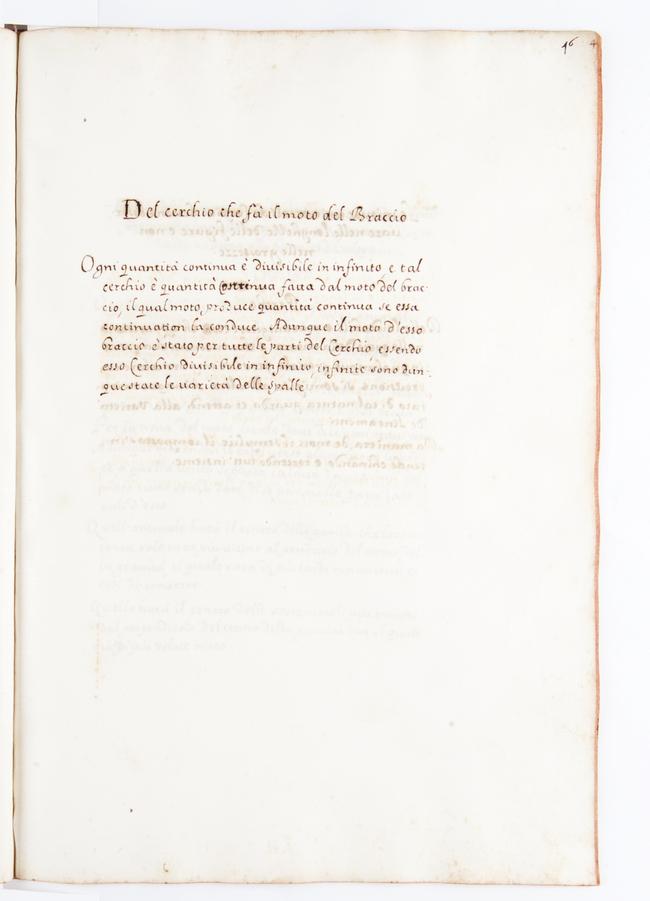 46 4
Del cerchio che fà il moto del Braccio
Ogni quantità continua è divisibile in infinito, e tal
cerchio è quantità continua fatta dal moto del brac-
cio, il qual moto, produce quantità continua se essa
continuation la conduce. Adunque il moto d'esso
braccio è stato per tutte le parti del Cerchio essendo
esso Cerchio divisibile in infinito, infinite sono dun-
que state le varietà delle spalle